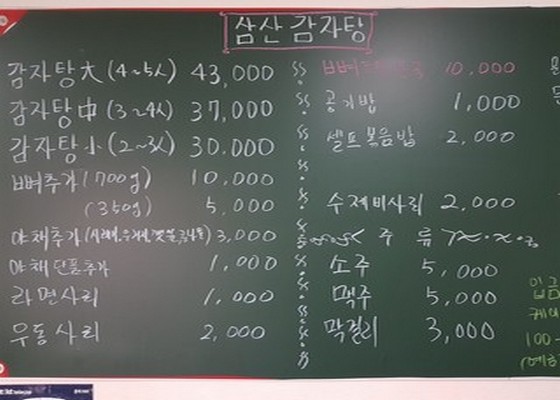 삼산 감자탕
감자탕 大 (4~5人) 43,000
감자탕 中 (3~4人) 37,000
감자탕 小 (2~3人) 30.000
뼈추가 (700g) 10,000
(350g) 5,000
야채추가 3,000
야채 단품추가 1,000
라면사리 1,000
우동사리 2,000
10,000
공기밥 1,000
셀프볶음밥 2,000
수제비사리 2,000
주 류
소주 5,000
맥주 5,000
막걸리 3,000
입금
100-